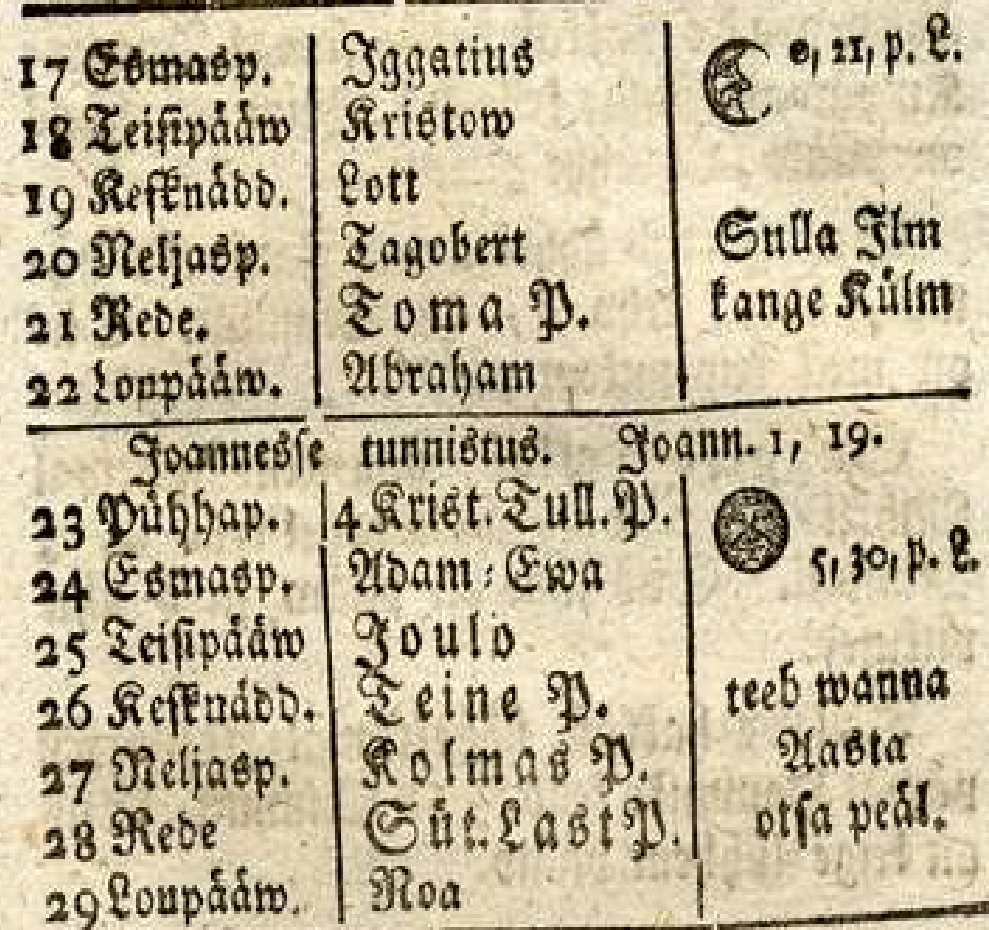 17 Esmasp. Iggatius 0, 21, p. L.
18 Teisipääw Kristow
19 Kesknädd. Lott
20 Neljasp. Tagobert Sulla Ilm
21 Rede. Toma P. kange Külm
22 Loupääw. Abraham
Joannesse tunnistus. Joann. 1, 19.
23 Pühhap. 4 Krist. Tull. P.
24 Esmasp. Adam : Ewa 5, 30, p. L.
25 Teisipääw Joulo
26 Kesknädd. Teine P. teeb wanna
27 Neljasp. Kolmas P. Aasta
28 Rede Süt. Last P. otsa peäl.
29 Loupääw. Noa